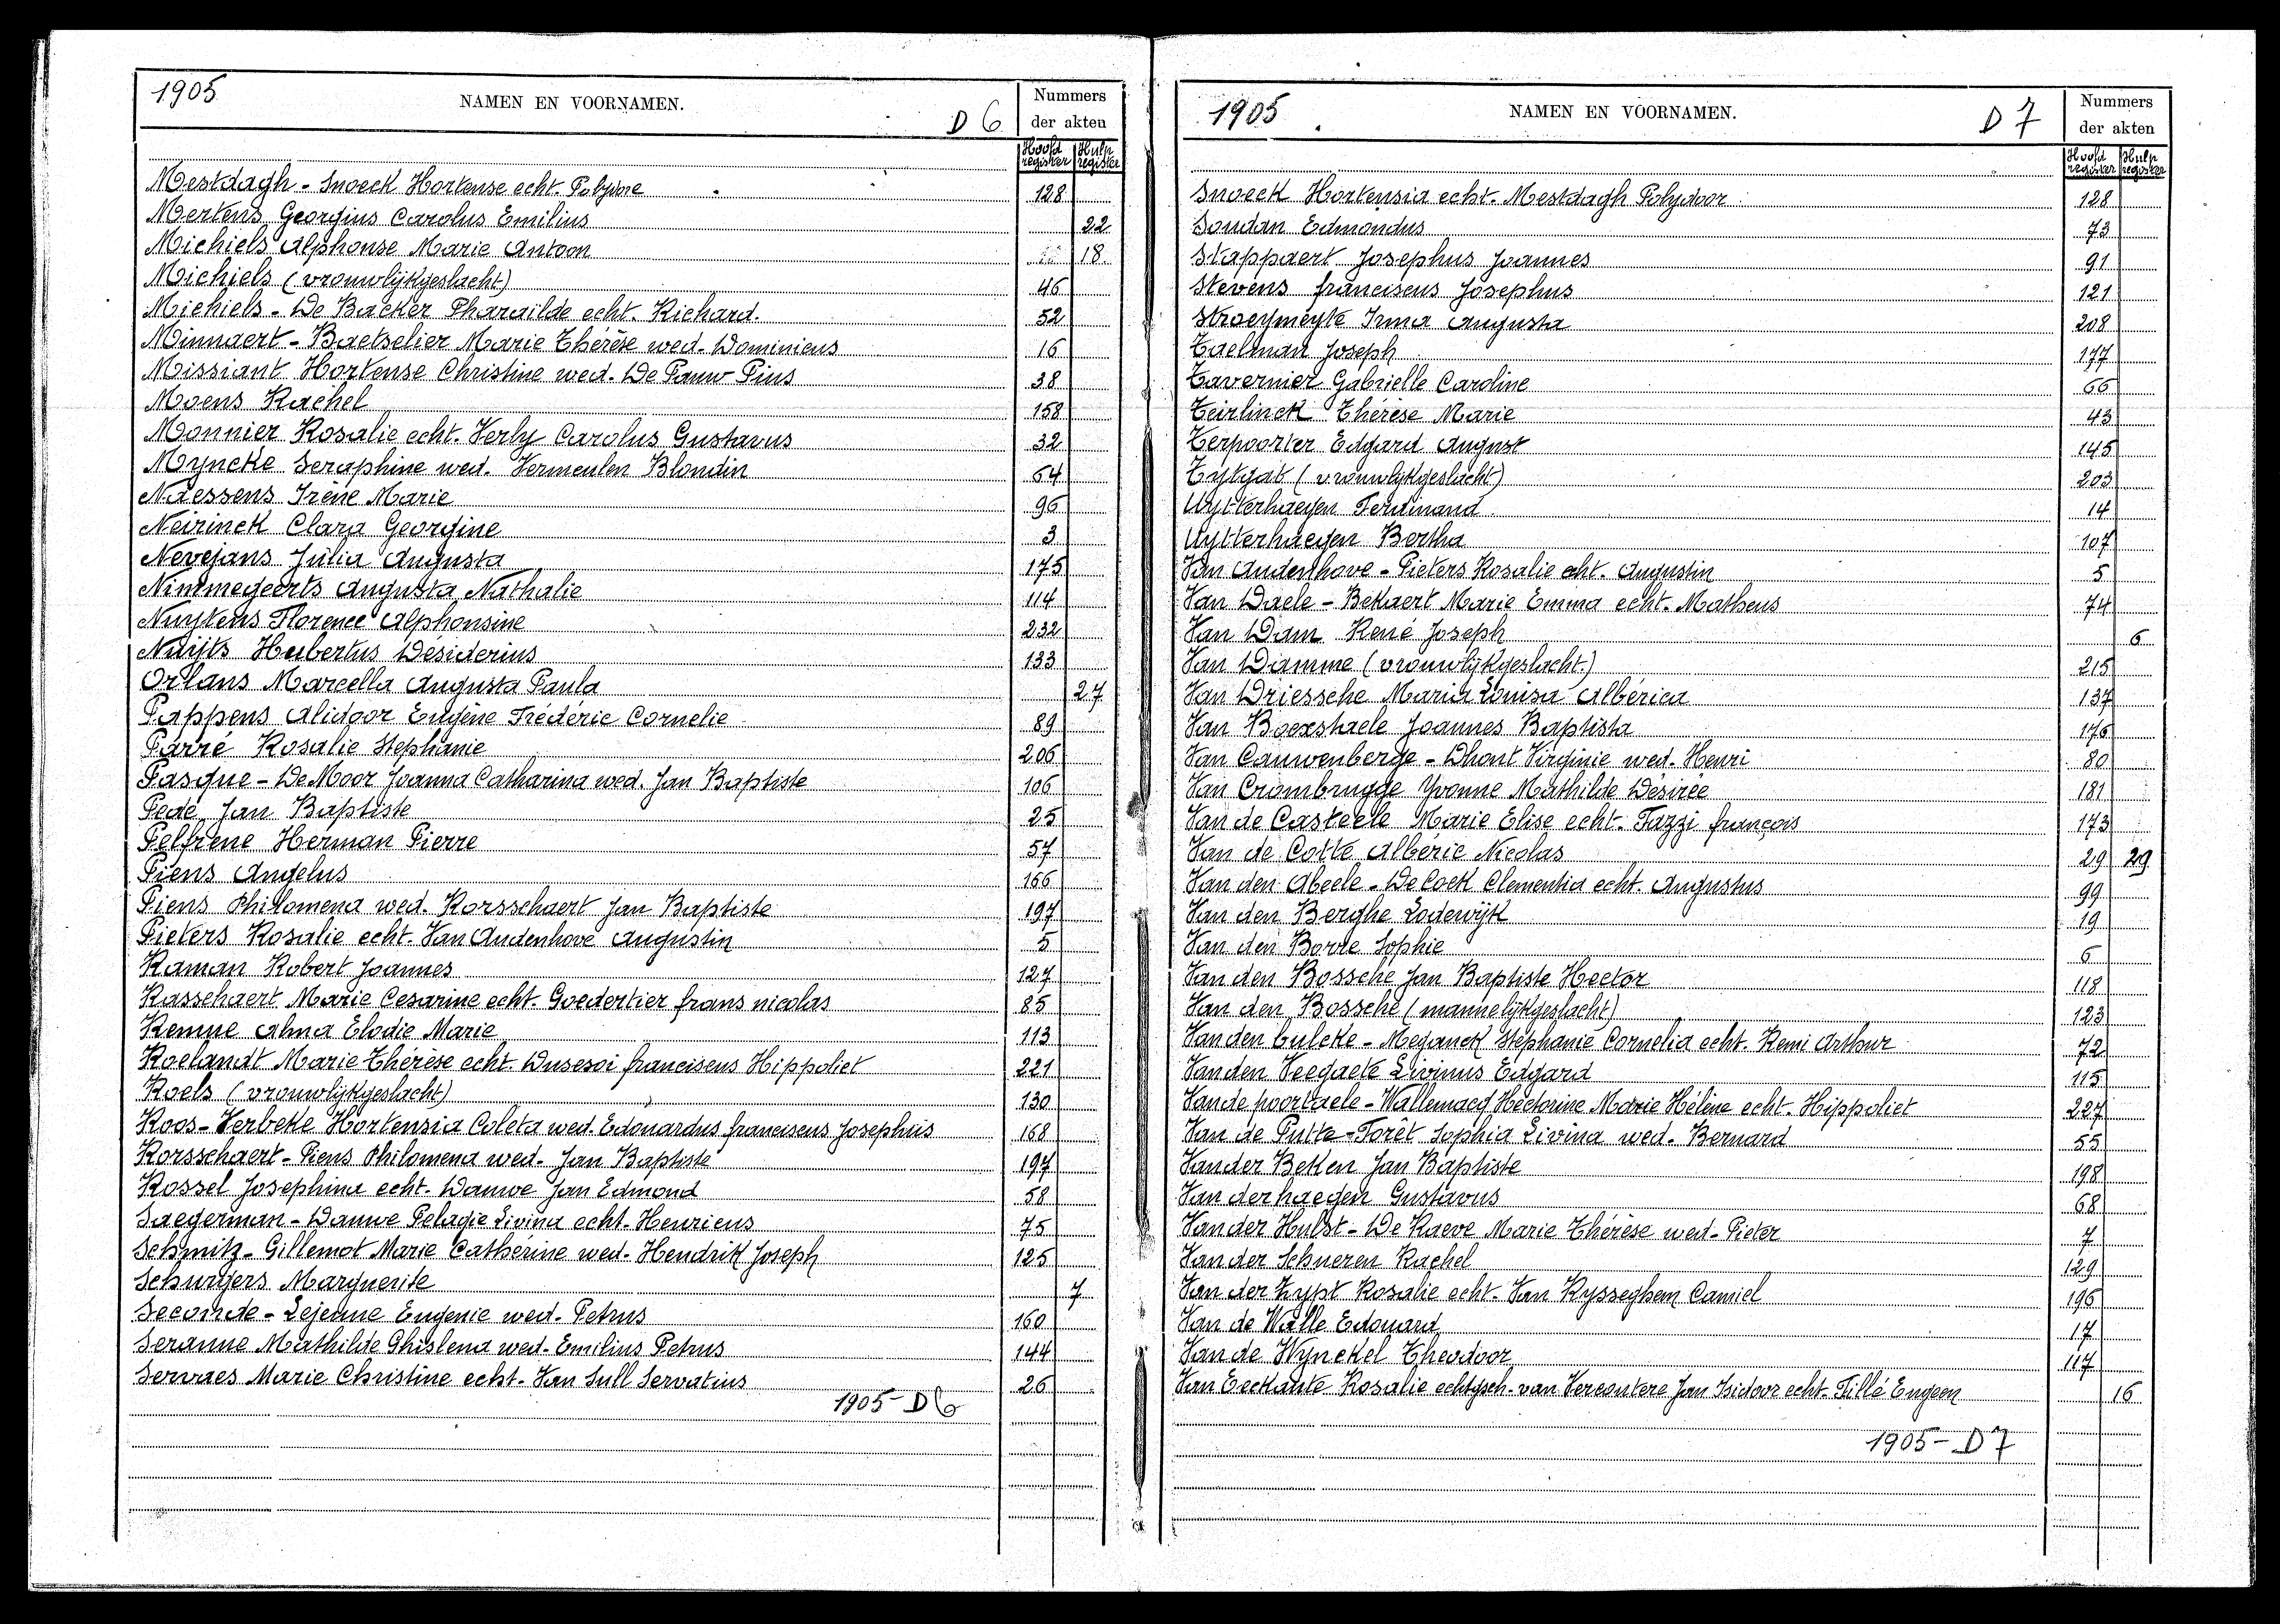 1905
NAMEN EN VOORNAMEN.
D 6
Nummers
der akten
Hoofd register Hulp register
Mestdagh - Snoeck Hortense echt. Polydore 128
Mertens Georgius Carolus Emilius 22
Michiels Alphonse Marie Antoon 18
Michiels (vrouwlijkgeslacht) 46
Michiels - De Backer Pharaïlde echt. Richard. 52
Minnaert - Baetselier Marie Thérèse wed. Dominicus 16
Missiant Hortense Christine wed. De Pauw Pius 38
Moens Rachel 158
Monnier Rosalie echt. Verly Carolus Gustavus 32
Myncke Seraphine wed. Vermeulen Blondin 64
Naessens Irène Marie 96
Neirinck Clara Georgine 3
Nevejans Julia Augusta 175
Nimmegeerts Augusta Nathalie 114
Nuytens Florence Alphonsine 232
Nuijts Hubertus Désiderius 133
Orlans Marcella Augusta Paula 27
Pappens Alidoor Eugène Frédéric Cornelie 89
Parré Rosalie Stephanie 206
Pasque - De Moor Joanna Catharina wed. Jan Baptiste 106
Pede Jan Baptiste 25
Pelfrene Herman Pierre 57
Piens Angelus 166
Piens Philomena wed. Rorsschaert Jan Baptiste 197
Pieters Rosalie echt. Van Audenhove Augustin 5
Raman Robert Joannes 127
Rasschaert Marie Cesarine echt. Goedertier frans nicolas 85
Remue Alma Elodie Marie 113
Roelandt Marie Thérèse echt. Dusesoi franciscus Hippoliet 221
Roels (vrouwlijkgeslacht) 130
Roos - Verbeke Hortensia Coleta wed. Edouardus franciscus Josephus 168
Rorsschaert - Piens Philomena wed. Jan Baptiste 197
Rossel Josephina echt. Dauwe Jan Edmond 58
Saegerman - Dauwe Pelagie Livina echt. Henricus 75
Schmitz - Gillemot Marie Cathérine wed. Hendrik Joseph 125
Schurgers Marguerite 7
Seconde - Lejeune Eugenie wed. Petrus 160
Seranne Mathilde Ghislena wed. Emilius Petrus 144
Servaes Marie Christine echt. Van Sull Servatius 26
1905 - D 6
1905
NAMEN EN VOORNAMEN.
D 7
Nummers
der akten
Hoofd register Hulp register
Snoeck Hortensia echt. Mestdagh Polydoor 128
Soudan Edmondus 73
Stappaert Josephus Joannes 91
Stevens franciscus Josephus 121
Stroeymeyte Irma Augusta 208
Taelman Joseph 177
Tavernier Gabrielle Caroline 66
Teirlinck Thérèse Marie 43
Terpoorter Edgard August 145
Tytgat (vrouwlijkgeslacht) 203
Uytterhaegen Ferdinand 14
Uytterhaegen Bertha 107
Van Audenhove - Pieters Rosalie echt. Augustin 5
Van Daele - Bekaert Marie Emma echt. Matheus 74
Van Dam René Joseph 6
Van Damme (vrouwlijkgeslacht.) 215
Van Driessche Maria Louisa Albérica 137
Van Boexstaele Joannes Baptista 176
Van Cauwenberge - Dhont Virginie wed. Henri 80
Van Crombrugge Yvonne Mathilde Désirée 181
Van de Casteele Marie Elise echt. Fazzi françois 173
Van de Cotte Albéric Nicolas 29 29
Van den Abeele - De Cock Clementia echt. Augustus 99
Van den Berghe Lodewijk 19
Van den Borre Sophie 6
Van den Bossche Jan Baptiste Hector 118
Van den Bossche (mannelijkgeslacht) 123
Van den bulcke - Meganck Stéphanie Cornelia echt. Remi Arthur 72
Van den Veegaete Livinus Edgard 115
Van de poortaele - Wallemacq Hectorine Marie Hélène echt. Hippoliet 227
Van de Putte - Foret Sophia Livina wed. Bernard 55
Van der Beken Jan Baptiste 198
Van der haegen Gustavus 68
Van der Hulst - De Raeve Marie Thérèse wed. Pieter 7
Van der Schueren Rachel 129
Van der Zypt Rosalie echt. Van Rysseghem Camiel 196
Van de Walle Edouard 17
Van de Wynckel Theodoor 117
Van Eeckaute Rosalie echtgsch. van Vercoutere Jan Isidoor echt. Tillé Eugeen 16
1905 - D 7